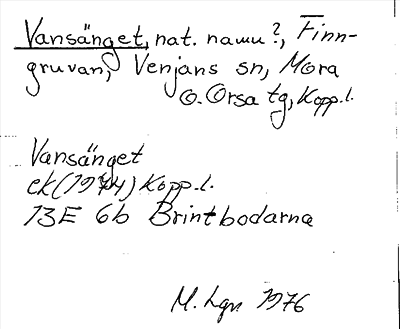 Vansänget, nat. namn?, Finn-
gruvan, Venjans sn, Mora
o. Orsa tg, Kopp.l.
Vansänget
ek (1974) Kopp.l.
13E 6b Brintbodarna
M. Lgn 1976